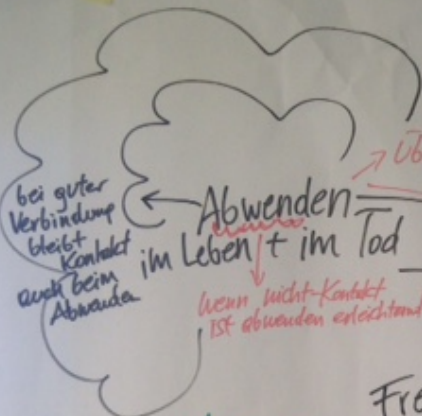 Üb
bei guter
Verbindung
bleibt
Kontakt
auch beim
Abwenden
Abwenden
im Leben + im Tod
wenn nicht-Kontakt
ist abwenden erleichternd
Fre